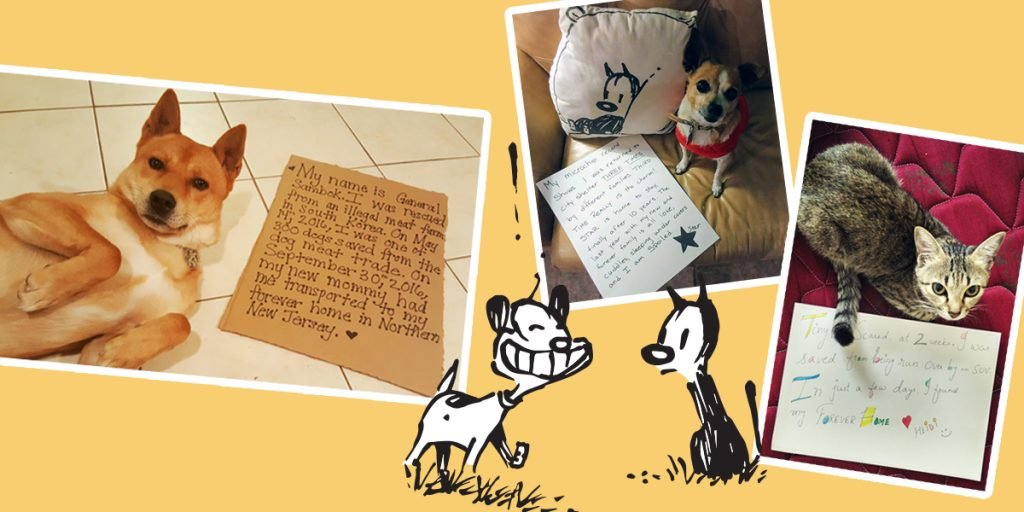 My name is General
Sambok. I was rescued
from an illegal meat farm
in South Korea. On May
2016, I was one of
300 dogs saved from the
dog meat trade. On
September 30, 2016,
my new mommy had
me transported to my
forever home in Northern
New Jersey. ♥
My microchip record
shows I was returned to
city shelter THREE TIMES
by different families. Third
Time Really is the charm!
STAR is home to stay
finally after 10 years. The
last year with my new and
forever family is all love,
cuddles, sleeping under covers
and I am spoiled Star
Tiny Scared at 2 weeks, I was
saved from being run over by an SUV.
In just a few days, I found
my FOREVER HOME ♥ Heidi :)